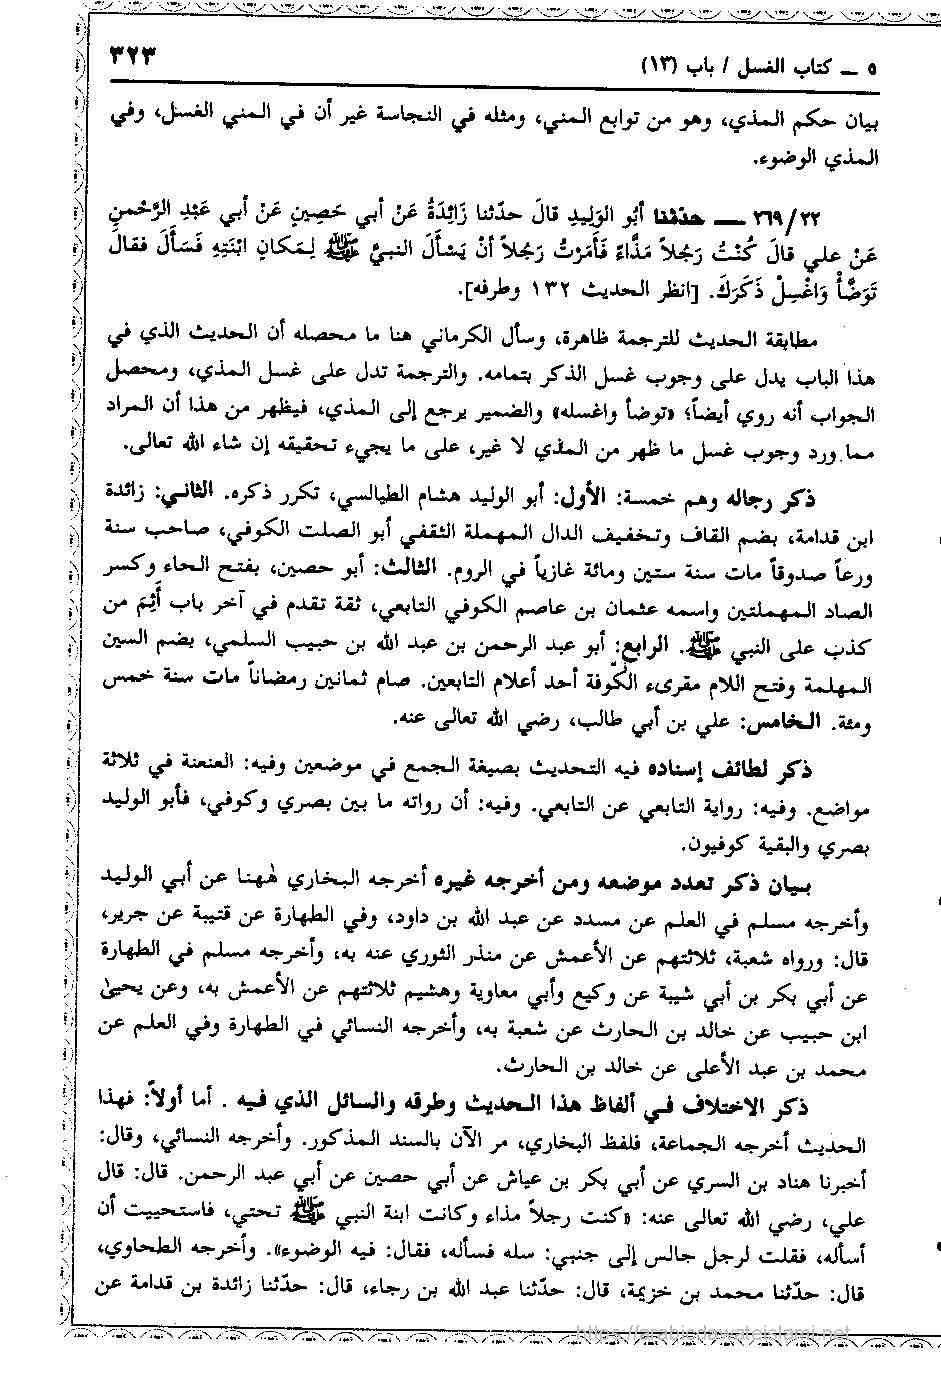 ٥ ــ كتاب الغسل / باب (١٣)
٣٢٣
بيان حكم المذي، وهو من توابع المني، ومثله في النجاسة غير أن في المني الغسل، وفي
المذي الوضوء.
٢٦٩/٢٢ ــ حدّثنا أبُو الوَلِيدِ قالَ حدّثنا زَائِدَةُ عَنْ أبي حَصِينٍ عَنْ أبي عَبْدِ الرَّحْمنِ
عَنْ علي قالَ كُنْتُ رَجُلاً مَذَّاءً فَأَمَرْتُ رَجُلاً أنْ يَسْأَلَ النبيَّ ﷺ لِمَكانِ ابْنَتِهِ فَسَأَلَ فقال
تَوَضَّأْ وَاغْسِلْ ذَكَرَكَ. [انظر الحديث ١٣٢ وطرفه].
مطابقة الحديث للترجمة ظاهرة، وسأل الكرماني هنا ما محصله أن الحديث الذي في
هذا الباب يدل على وجوب غسل الذكر بتمامه. والترجمة تدل على غسل المذي، ومحصل
الجواب أنه روي أيضاً؛ «توضأ واغسله» والضمير يرجع إلى المذي، فيظهر من هذا أن المراد
مما ورد وجوب غسل ما ظهر من المذي لا غير، على ما يجيء تحقيقه إن شاء الله تعالى.
ذكر رجاله وهم خمسة: الأول: أبو الوليد هشام الطيالسي، تكرر ذكره. الثاني: زائدة
ابن قدامة، بضم القاف وتخفيف الدال المهملة الثقفي أبو الصلت الكوفي، صاحب سنة
ورعاً صدوقاً مات سنة ستين ومائة غازياً في الروم. الثالث: أبو حصين، بفتح الحاء وكسر
الصاد المهملتين واسمه عثمان بن عاصم الكوفي التابعي، ثقة تقدم في آخر باب أَثِمَ من
كذب على النبي ﷺ. الرابع: أبو عبد الرحمن بن عبد الله بن حبيب السلمي، بضم السين
المهلمة وفتح اللام مقرىء الكُوفة أحد أعلام التابعين. صام ثمانين رمضاناً مات سنة خمس
ومئة. الخامس: علي بن أبي طالب، رضي الله تعالى عنه.
ذكر لطائف إسناده فيه التحديث بصيغة الجمع في موضعين وفيه: العنعنة في ثلاثة
مواضع. وفيه: رواية التابعي عن التابعي. وفيه: أن رواته ما بين بصري وكوفي، فأبو الوليد
بصري والبقية كوفيون.
بيان ذكر تعدد موضعه ومن أخرجه غيره أخرجه البخاري هٰهنا عن أبي الوليد
وأخرجه مسلم في العلم عن مسدد عن عبد الله بن داود، وفي الطهارة عن قتيبة عن جرير،
قال: ورواه شعبة، ثلاثتهم عن الأعمش عن منذر الثوري عنه به، وأخرجه مسلم في الطهارة
عن أبي بكر بن أبي شيبة عن وكيع وأبي معاوية وهشيم ثلاثتهم عن الأعمش به، وعن يحيىٰ
ابن حبيب عن خالد بن الحارث عن شعبة به، وأخرجه النسائي في الطهارة وفي العلم عن
محمد بن عبد الأعلى عن خالد بن الحارث.
ذكر الاختلاف في ألفاظ هذا الحديث وطرقه والسائل الذي فيه . أما أولاً: فهذا
الحديث أخرجه الجماعة، فلفظ البخاري، مر الآن بالسند المذكور. وأخرجه النسائي، وقال:
أخبرنا هناد بن السري عن أبي بكر بن عياش عن أبي حصين عن أبي عبد الرحمن. قال: قال
علي، رضي الله تعالى عنه: «كنت رجلاً مذاء وكانت ابنة النبي ﷺ تحتي، فاستحييت أن
أسأله، فقلت لرجل جالس إلى جنبي: سله فسأله، فقال: فيه الوضوء». وأخرجه الطحاوي،
قال: حدّثنا محمد بن خزيمة، قال: حدّثنا عبد الله بن رجاء، قال: حدّثنا زائدة بن قدامة عن